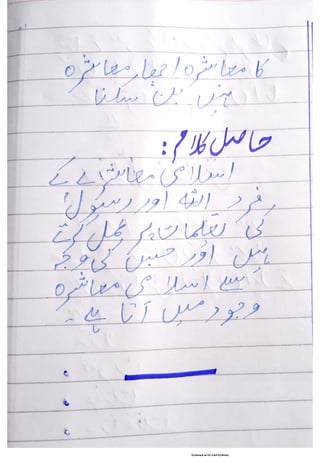 کا معاشرہ اچھا معاشرہ
نہیں بن سکتا
حاصل کلام:
اسلامی معاشرے کے
فرد اللہ اور رسولؐ
کی تعلمات پر عمل کرتے
ہیں اور جس کی وجہ
سے اسلامی معاشرہ
وجود میں آتا ہے۔
"Scanned w/ CamScanner